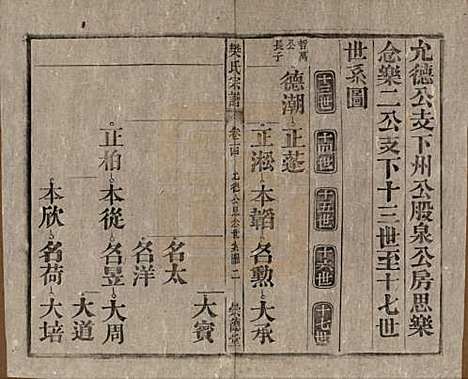 允德公支下州公股泉公房思樂
念樂二公支下十三世至十七世
世系圖
十三世 十四世 十五世 十六世 十七世
哲萬公長子
德潮 正蓬
正淞 本韜 名勳 大承
樊氏宗譜 卷十四
大賓
名太
名洋
正柏 本從 名昱 大周
大道
本欣 名荷 大培